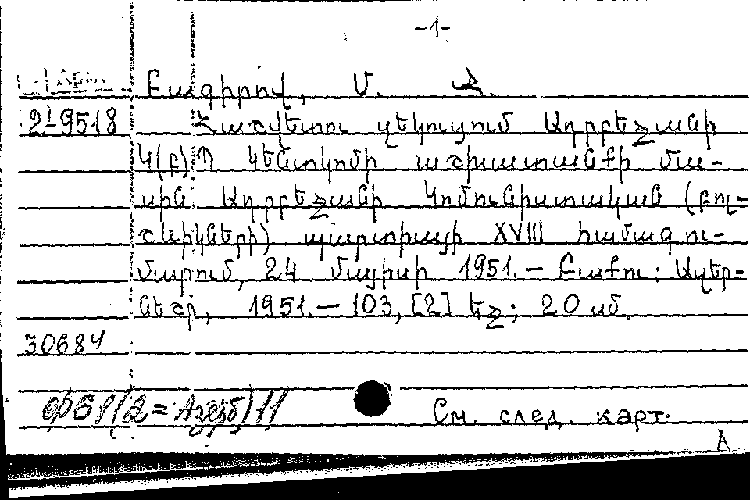 -1-
Բագիրով, Մ. Հ.
2-9518 Հաշվետու զեկուցում Ադրբեջանի
Կ(բ)Պ Կենտկոմի աշխատանքի մա-
սին Ադրբեջանի Կոմունիստական (բոլ-
շևիկների) պարտիայի XVIII համագու-
մարում, 24 մայիսի 1951.— Բաքու: Ազեր-
նեշր, 1951.— 103, [2] եջ; 20 սմ.
30684
См. след. карт.
А